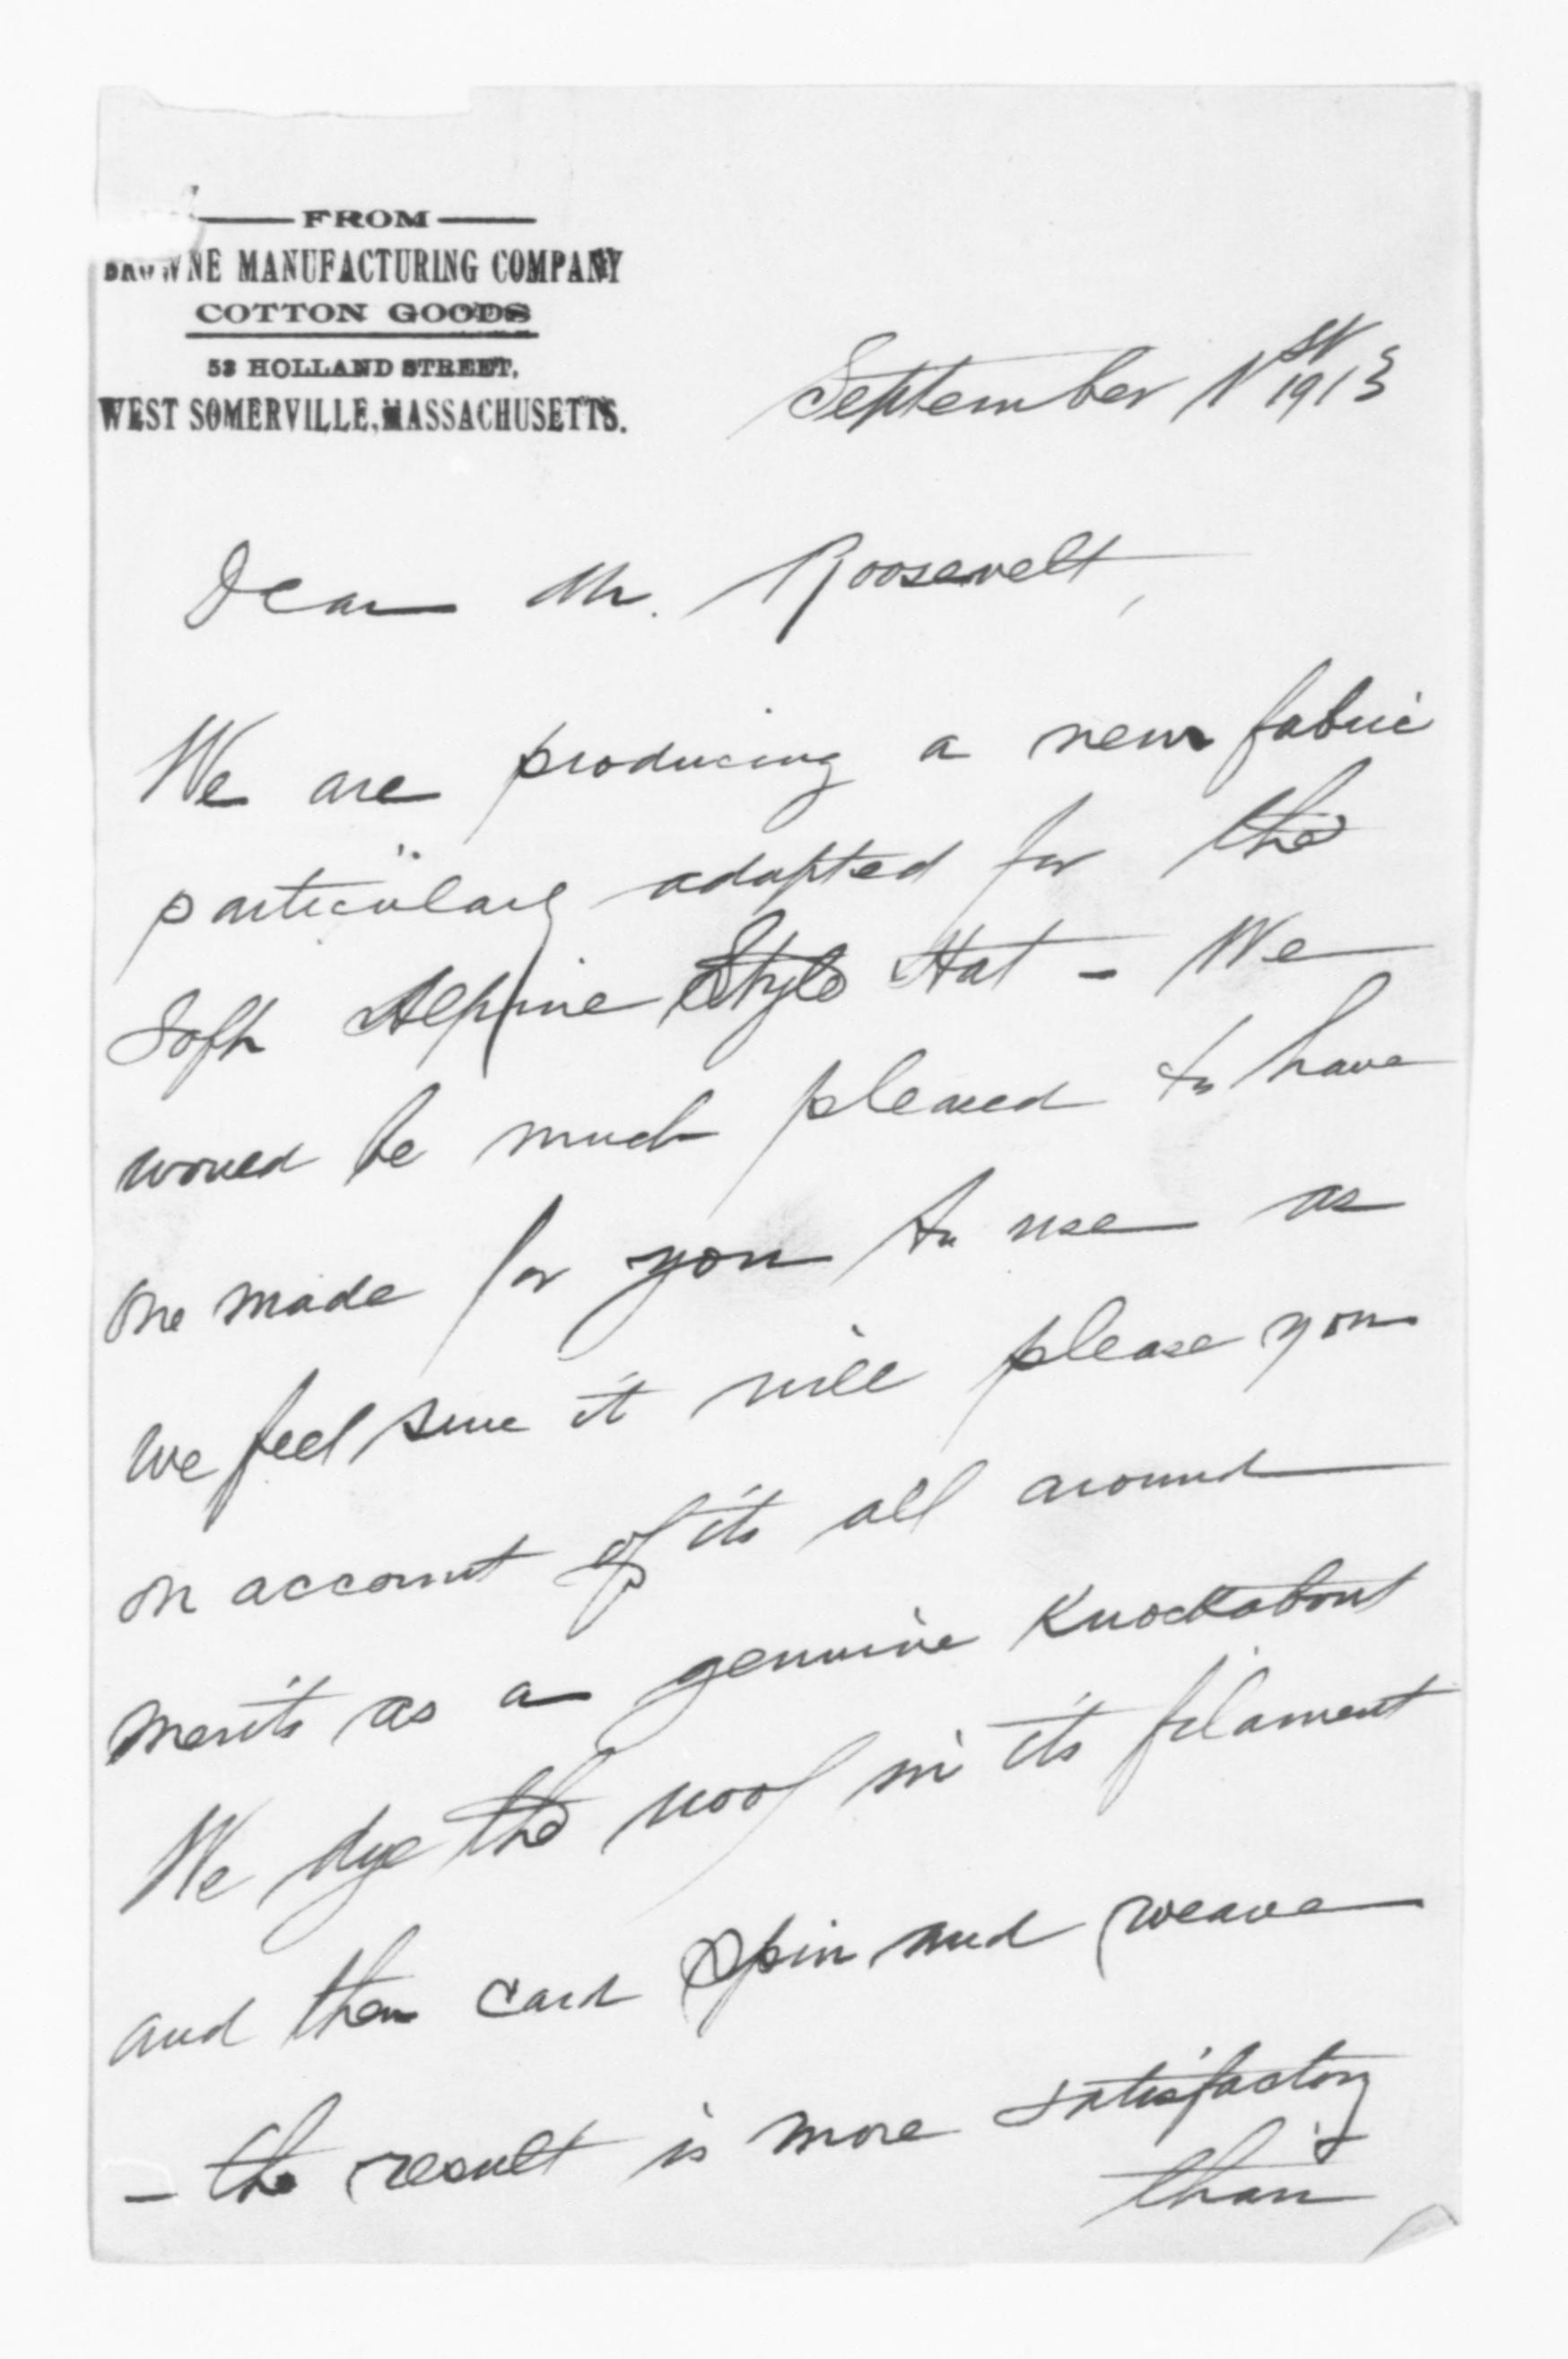 FROM
BROWNE MANUFACTURING COMPANY
COTTON GOODS
53 HOLLAND STREET,
WEST SOMERVILLE, MASSACHUSETTS.
September 1st 1913
Dear Mr. Roosevelt,
We are producing a new fabric
particulary adapted for the
Soft Alpine Style Hat - We
would be much pleased to have
one made for you to use as
we feel sure it will please you
on account of its all around
merits as a genuine Knockabout
We dye the wool in its filament
and then card spin and weave
- the result is more satisfactory
than